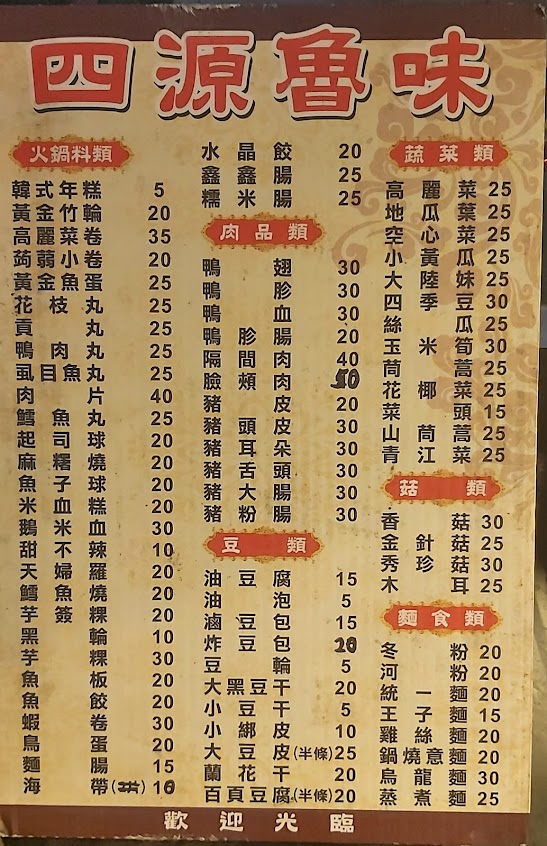 四源魯味
火鍋料類
韓式年糕 5
黃金竹輪 20
高麗菜卷 35
蒟蒻小卷 20
黃金魚蛋 25
花枝丸 25
貢丸 25
鴨肉丸 25
虱目魚丸 25
肉片 40
鱈魚丸 25
起司球 20
麻糬燒 20
魚子球 20
米血糕 20
鵝米血 30
甜不辣 10
天婦羅 20
鱈魚燒 20
芋簽粿 20
黑輪 10
芋粿 30
魚板 20
魚餃 20
蝦卷 30
鳥蛋 20
麵腸 15
海帶 10
水晶餃 20
鑫鑫腸 25
糯米腸 25
肉品類
鴨翅 30
鴨胗 30
鴨血 30
鴨胗腸 20
隔間肉 40
臉頰肉 50
豬皮 20
豬頭皮 30
豬耳朵 30
豬舌頭 30
豬大腸 30
豬粉腸 30
豆類
油豆腐 15
油泡 5
滷豆包 15
炸豆包 20
豆輪 5
大黑豆干 20
小豆干 5
小綁皮 10
大豆皮(半條) 25
蘭花干 20
百頁豆腐(半條) 20
蔬菜類
高麗菜 25
地瓜葉 25
空心菜 25
小黃瓜 25
大陸妹 25
四季豆 30
絲瓜 25
玉米筍 30
茼蒿 25
花椰菜 25
菜頭 15
山茼蒿 25
青江菜 25
菇類
香菇 30
金針菇 25
秀珍菇 30
木耳 25
麵食類
冬粉 20
河粉 20
統一麵 20
王子麵 15
雞絲麵 20
鍋燒意麵 20
烏龍麵 30
蒸煮麵 25
歡迎光臨